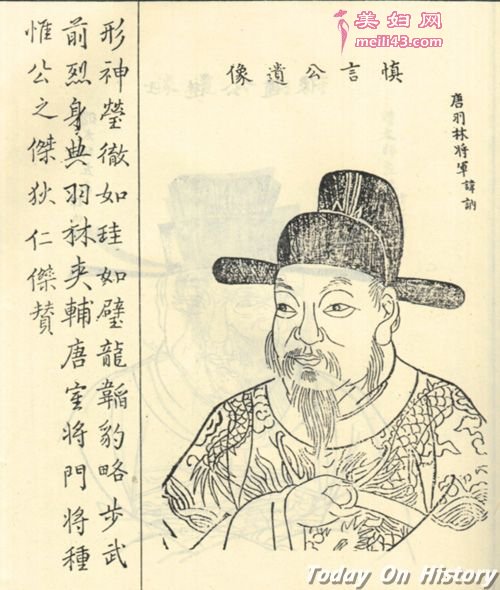 美妇网
meili43.com
慎言公遺像
唐羽林將軍諱訥
形神瑩徹如珪如璧龍韜豹略步武
前烈身典羽林夾輔唐室將門將種
惟公之傑狄仁傑贊
Today On History